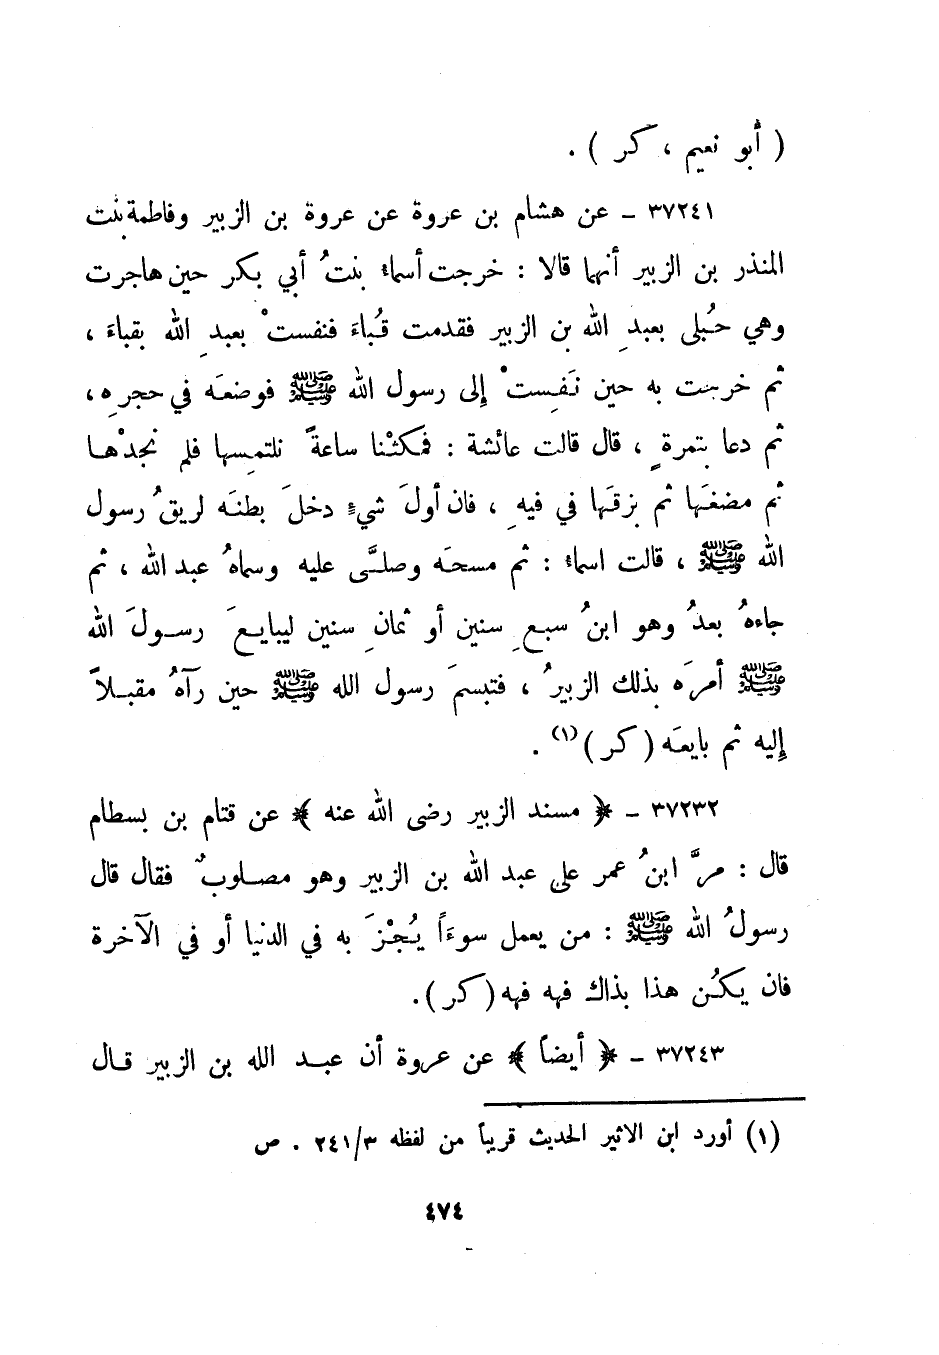 ( أبو نعيم ، كر ) .
٣٧٢٤١ ـ عن هشام بن عروة عن عروة بن الزبير وفاطمة بنت
المنذر بن الزبير أنهما قالا : خرجت أسماء بنتُ أبي بكر حين هاجرت
وهي حُبلى بعبدِ الله بن الزبير فقدمت قُباءَ فنفستْ بعبدِ الله بقباءَ ،
ثم خرجت به حين نَفِستْ إلى رسول الله ﷺ فوضعَه في حجرِه ،
ثم دعا بتمرةٍ ، قال قالت عائشة : فمكثْنا ساعةً نلتمِسها فلم نجدْها
ثم مضغَها ثم بزقَها في فيهِ ، فان أولَ شيءٍ دخلَ بطنَه لريقُ رسول
الله ﷺ ، قالت اسماء : ثم مسحَه وصلَّى عليه وسماهُ عبد الله ، ثم
جاءهُ بعدُ وهو ابنُ سبعِ سنين أو ثمانِ سنين ليبايعَ رسولَ الله
ﷺ أمرَه بذلك الزبيرُ ، فتبسمَ رسول الله ﷺ حين رآهُ مقبلاً
إليه ثم بايعَه ( كر )(١) .
٣٧٢٣٢ ـ ﴿ مسند الزبير رضى الله عنه ﴾ عن قتام بن بسطام
قال : مرَّ ابنُ عمر على عبد الله بن الزبير وهو مصلوبٌ فقال قال
رسولُ الله ﷺ : من يعمل سوءَاً يُجْزَ به في الدنيا أو في الآخرة
فان يكُن هذا بذاك فهه فهه ( كر ) .
٣٧٢٤٣ ـ ﴿ أيضاً ﴾ عن عروة أن عبد الله بن الزبير قال
(١) أورد ابن الاثير الحديث قريباً من لفظه ٢٤١/٣ . ص
٤٧٤